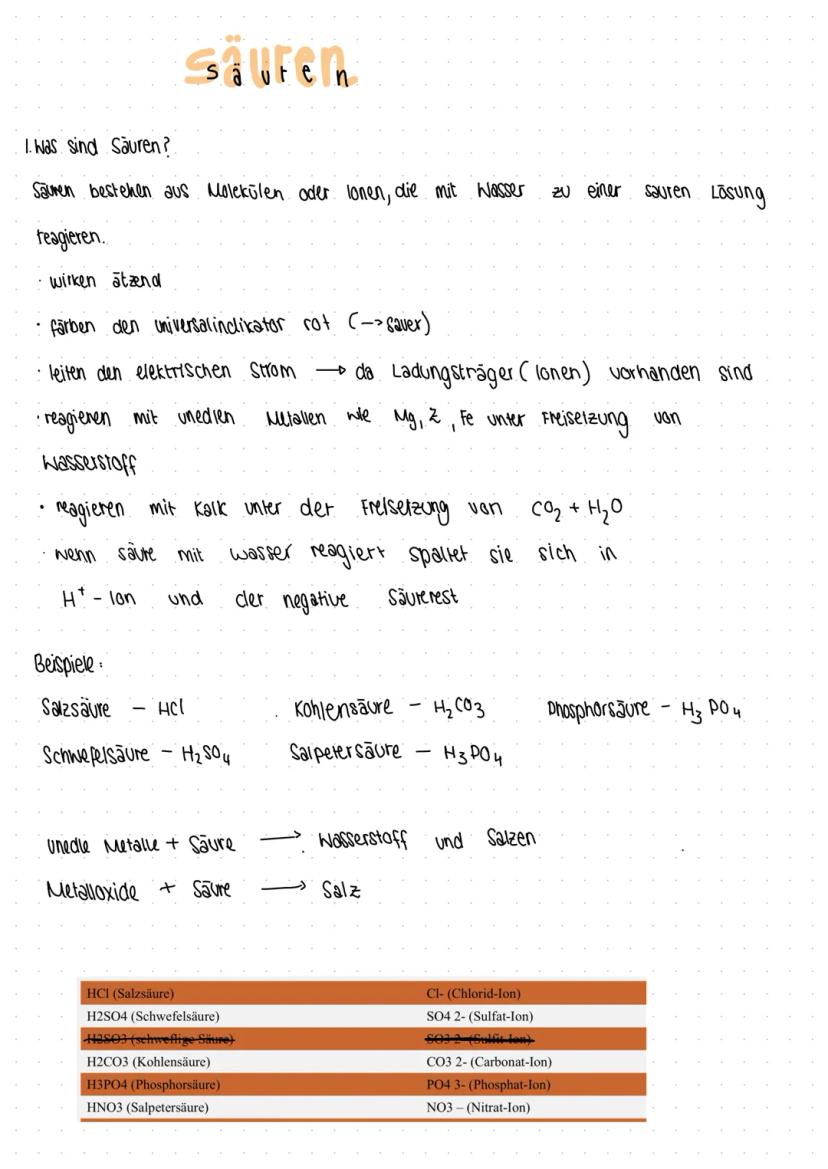 säuren
säuren
1. Was sind Säuren?
Säuren bestehen aus Molekülen oder Ionen, die mit Wasser zu einer sauren Lösung
reagieren.
· wirken ätzend
· färben den universalindikator rot (-> sauer)
· leiten den elektrischen Strom → da Ladungsträger (Ionen) vorhanden sind
· reagieren mit unedlen Metallen wie Mg, Z, Fe unter Freisetzung von
Wasserstoff
· reagieren mit Kalk unter der Freisetzung von CO₂ + H₂O
· wenn säure mit wasser reagiert spaltet sie sich in
H⁺ - Ion und der negative Säurerest
Beispiele:
Salzsäure - HCl Kohlensäure - H₂CO₃ Phosphorsäure - H₃PO₄
Schwefelsäure - H₂SO₄ Salpetersäure - H₃PO₄
unedle Metalle + Säure → Wasserstoff und Salzen
Metalloxide + Säure → Salz
HCl (Salzsäure) Cl- (Chlorid-Ion)
H2SO4 (Schwefelsäure) SO4 2- (Sulfat-Ion)
H2SO3 (schweflige Säure) SO3 2- (Sulfit-Ion)
H2CO3 (Kohlensäure) CO3 2- (Carbonat-Ion)
H3PO4 (Phosphorsäure) PO4 3- (Phosphat-Ion)
HNO3 (Salpetersäure) NO3 – (Nitrat-Ion)